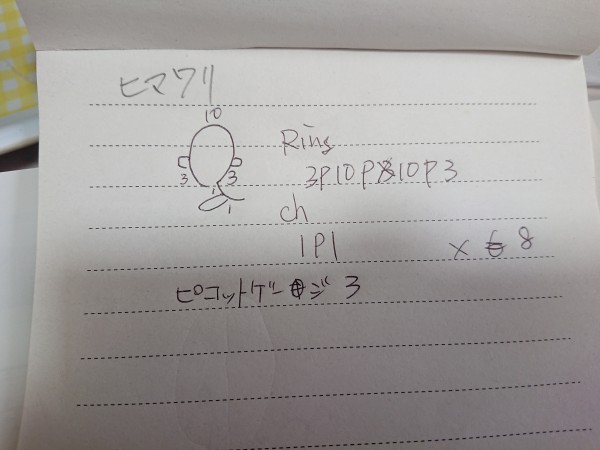 ヒマワリ
10
Ring
3 3
3P10P10P3
1
1
ch
1P1 × 8
ピコットゲージ 3